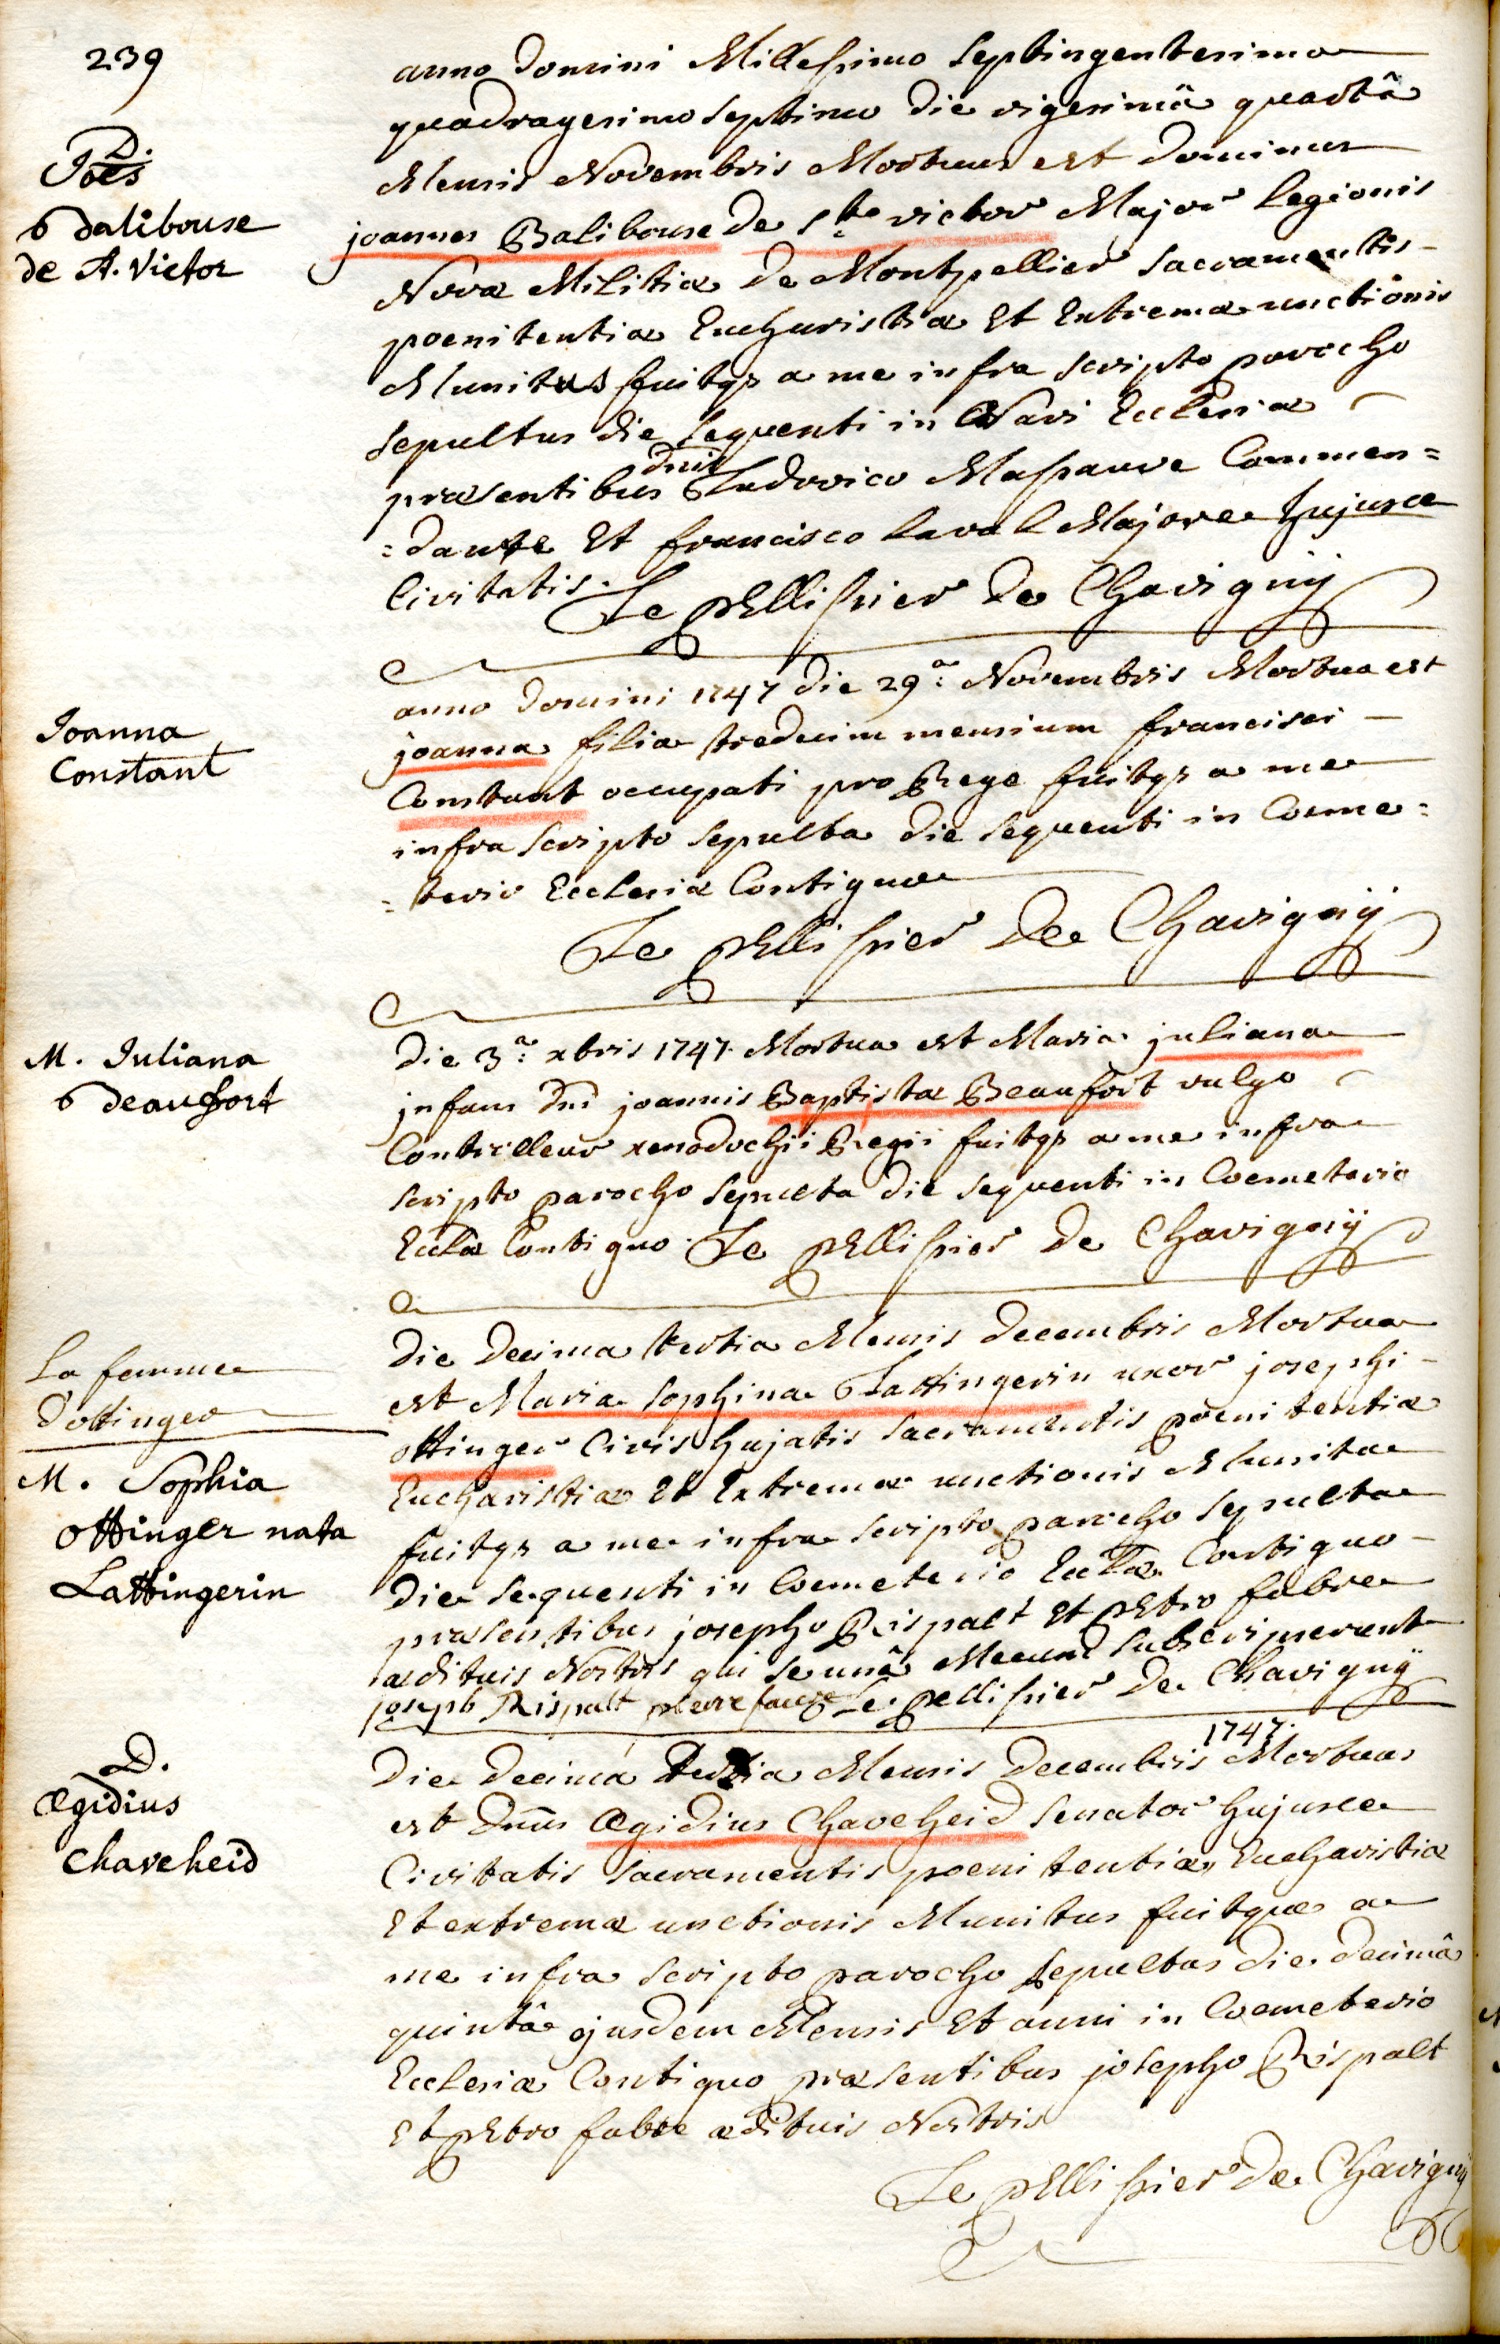 239
anno Domini Millesimo Septingentesimo
quadragesimo septimo die vigesimâ quartâ
Mensis Novembris Mortuus est Dominus
D.
Joës
Balibouse
de St. Victor
joannes Balibouse de Ste victor Major legionis
Novæ Militiæ de Montpellier sacramentis
poenitentiæ Eucharistiæ Et Extremæ unctionis
Munitus fuitqz a me infra scripto parocho
sepultus die sequenti in Navi Ecclesiæ
præsentibus dnis Ludovico Maspauve Commen=
=dante Et francisco laval Majore hujusce
Civitatis. Le pEllissier de Chavignÿ
Joanna
Constant
anno Domini 1747 die 29a Novembris Mortua est
joanna filia tredecim mensium francisci
Constant occupati pro Rege fuitqz a me
infra scripto sepulta die sequenti in Coeme=
=terio Ecclesiæ Contiguo
Le pEllissier de Chavignÿ
M. Juliana
Beaufort
Die 3a xbris 1747. Mortua est Maria juliana
infans Dni joannis Baptistæ Beaufort vulgo
Controlleur xenodochii Regii fuitqz a me infra
scripto parocho sepulta die sequenti in Coemeterio
Eclæ Contiguo. Le pEllissier de Chavignÿ
La femme
d'ottinger
M. Sophia
Ottinger nata
Lattingerin
Die Decima tertia Mensis Decembris Mortua
est Maria Sophina Lattingerin uxor josephi
ottinger Civis hujatis sacramentis poenitentiæ
Eucharistiæ Et Extremæ unctionis Munita
fuitqz a me infra scripto parocho sepulta
die sequenti in Coemeterio Eclæ Contiguo
præsentibus josepho Rispalt Et pEtro fabre
ædituis Nostris qui se unâ Mecum subscripserunt
joseph Rispalt pierre faure Le pellissier de Chavignÿ
D.
Ægidius
Chaveheid
Die Decima tertia Mensis Decembris 1747. Mortuus
est Dnus Ægidius Chaveheid senator hujusce
Civitatis sacramentis poenitentiæ, Eucharistiæ
Et extremæ unctionis Munitus fuitque a
me infra scripto parocho sepultus die decimâ
quintâ ejusdem Mensis Et anni in Coemeterio
Ecclesiæ Contiguo præsentibus josepho Rispalt
Et pEtro fabre ædituis Nostris
Le pEllissier de Chavignÿ